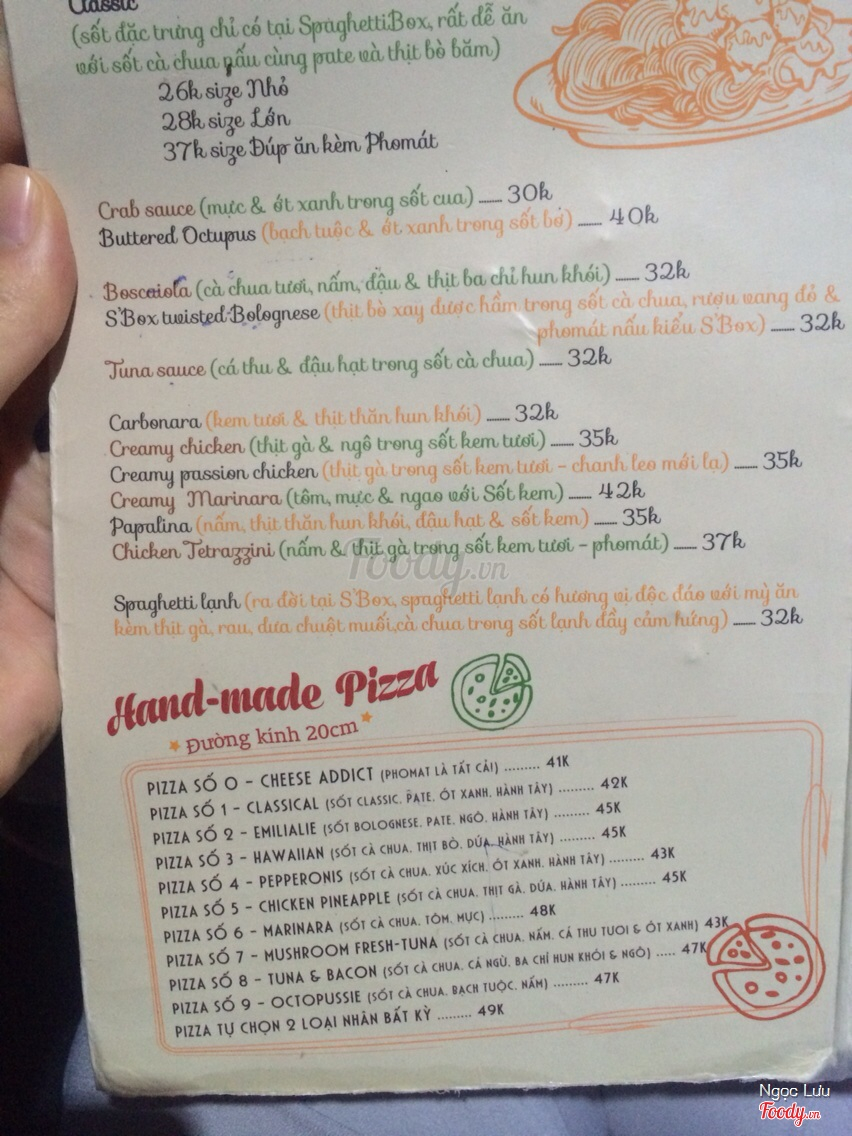 Classic
(sốt đặc trưng chỉ có tại SpaghettiBox, rất dễ ăn
với sốt cà chua nấu cùng pate và thịt bò băm)
26k size Nhỏ
28k size Lớn
37k size Đúp ăn kèm Phomát
Crab sauce (mực & ớt xanh trong sốt cua) ...... 30k
Buttered Octupus (bạch tuộc & ớt xanh trong sốt bơ) ...... 40k
Boscaiola (cà chua tươi, nấm, đậu & thịt ba chỉ hun khói) ...... 32k
S'Box twisted Bolognese (thịt bò xay được hầm trong sốt cà chua, rượu vang đỏ &
phomát nấu kiểu S'Box) ...... 32k
Tuna sauce (cá thu & đậu hạt trong sốt cà chua) ...... 32k
Carbonara (kem tươi & thịt thăn hun khói) ...... 32k
Creamy chicken (thịt gà & ngô trong sốt kem tươi) ...... 35k
Creamy passion chicken (thịt gà trong sốt kem tươi - chanh leo mới lạ) ...... 35k
Creamy Marinara (tôm, mực & ngao với Sốt kem) ...... 42k
Papalina (nấm, thịt thăn hun khói, đậu hạt & sốt kem) ...... 35k
Chicken Tetrazzini (nấm & thịt gà trong sốt kem tươi - phomát) ...... 37k
Foody.vn
Spaghetti lạnh (ra đời tại S'Box, spaghetti lạnh có hương vị độc đáo với mỳ ăn
kèm thịt gà, rau, dưa chuột muối,cà chua trong sốt lạnh đầy cảm hứng) ...... 32k
Hand-made Pizza
Đường kính 20cm
PIZZA SỐ 0 - CHEESE ADDICT (PHOMAT LÀ TẤT CẢ!) ......... 41K
PIZZA SỐ 1 - CLASSICAL (SỐT CLASSIC, PATE, ỚT XANH, HÀNH TÂY) ......... 42K
PIZZA SỐ 2 - EMILIALIE (SỐT BOLOGNESE, PATE, NGÔ, HÀNH TÂY) ......... 45K
PIZZA SỐ 3 - HAWAIIAN (SỐT CÀ CHUA, THỊT BÒ, DỨA, HÀNH TÂY) ......... 45K
PIZZA SỐ 4 - PEPPERONIS (SỐT CÀ CHUA, XÚC XÍCH, ỚT XANH, HÀNH TÂY) ......... 43K
PIZZA SỐ 5 - CHICKEN PINEAPPLE (SỐT CÀ CHUA, THỊT GÀ, DỨA, HÀNH TÂY) ......... 45K
PIZZA SỐ 6 - MARINARA (SỐT CÀ CHUA, TÔM, MỰC) ......... 48K
PIZZA SỐ 7 - MUSHROOM FRESH-TUNA (SỐT CÀ CHUA, NẤM, CÁ THU TƯƠI & ỚT XANH) 43K
PIZZA SỐ 8 - TUNA & BACON (SỐT CÀ CHUA, CÁ NGỪ, BA CHỈ HUN KHÓI & NGÔ) ..... 47K
PIZZA SỐ 9 - OCTOPUSSIE (SỐT CÀ CHUA, BẠCH TUỘC, NẤM) ......... 47K
PIZZA TỰ CHỌN 2 LOẠI NHÂN BẤT KỲ ......... 49K
Ngọc Lưu
Foody.vn